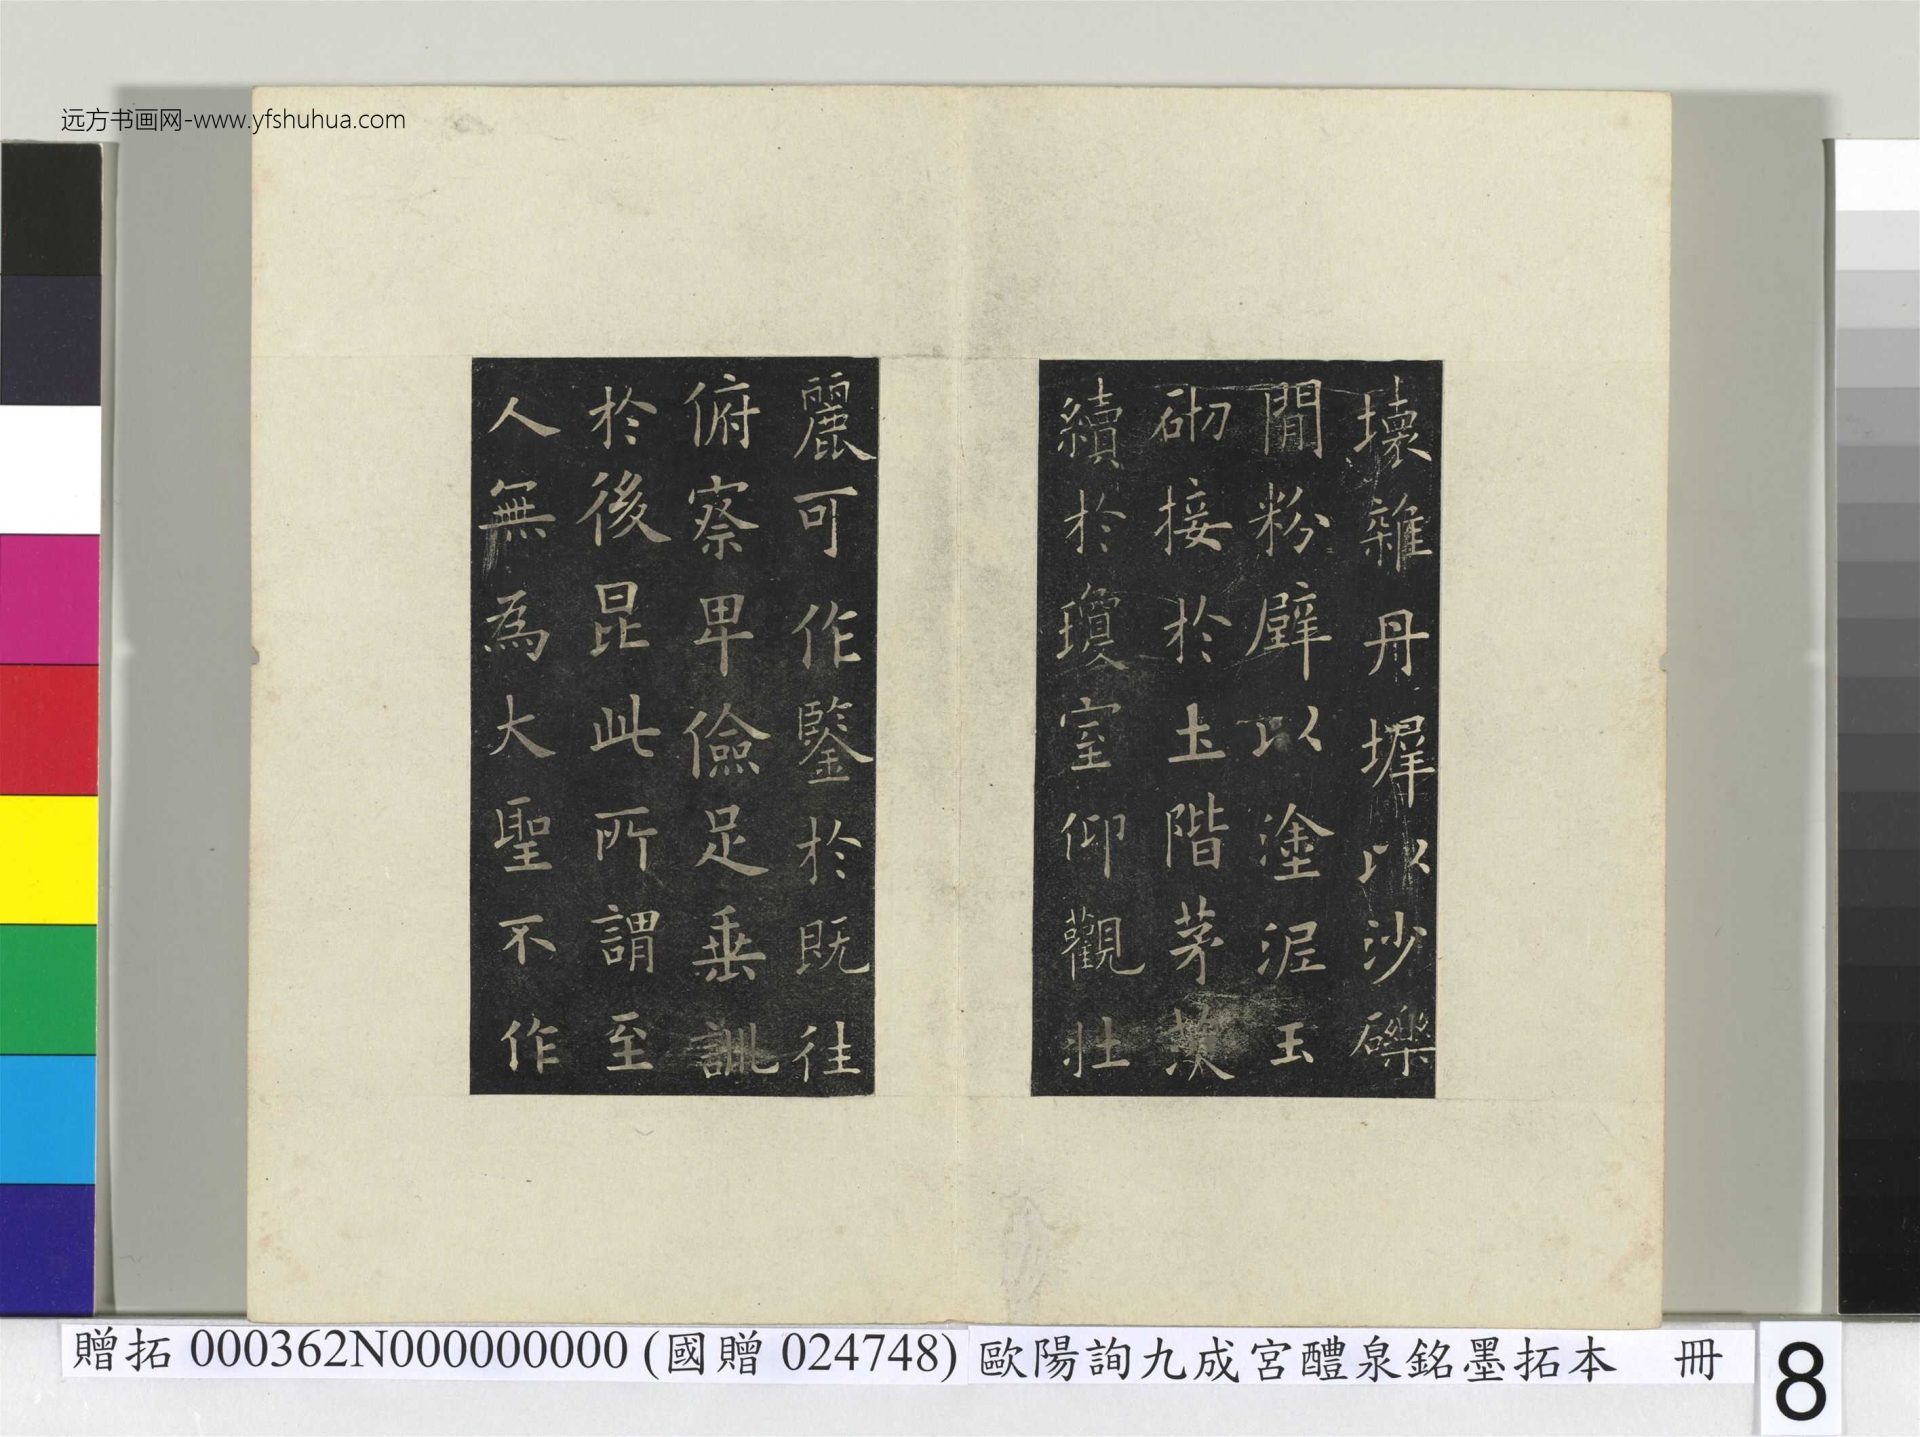 远方书画网-www.yfshuhua.com
壞雜丹墀以沙礫
間粉壁以塗泥玉
砌接於土階茅茨
續於瓊室仰觀壯
麗可作鑒於既往
俯察卑儉足垂訓
於後昆此所謂至
人無為大聖不作
贈拓 000362N000000000 (國贈 024748) 歐陽詢九成宮醴泉銘墨拓本 冊
8